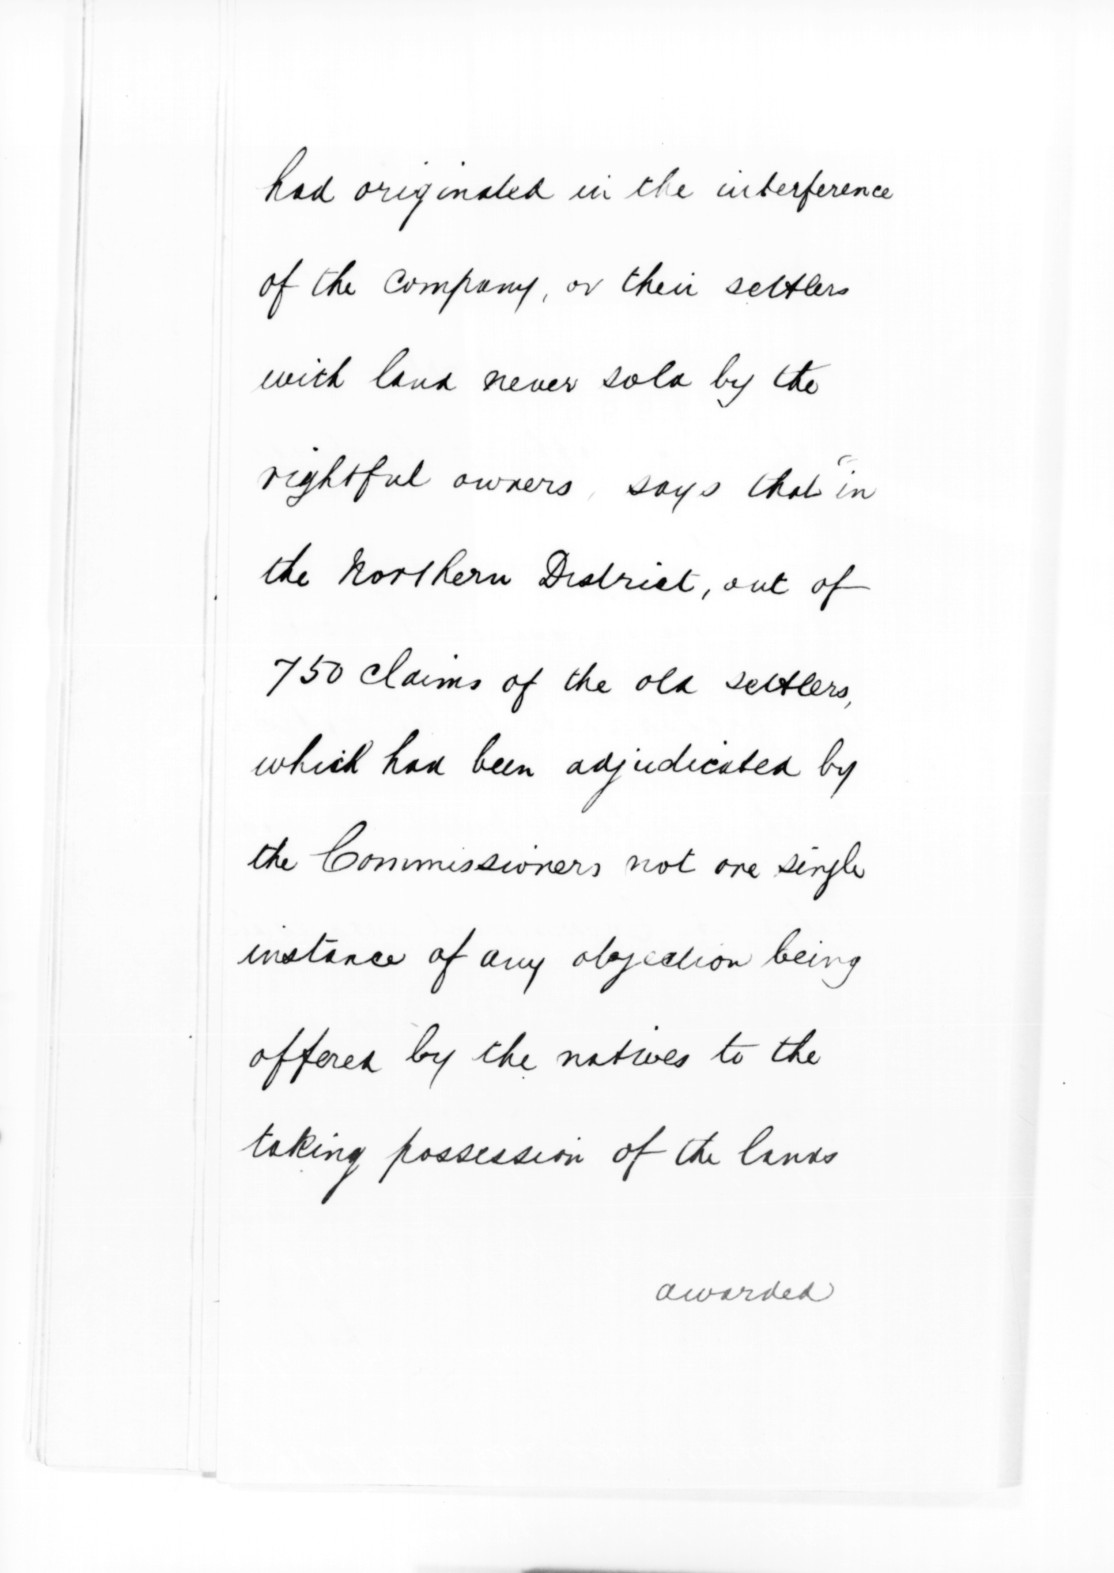 had originated in the interference
of the company, or their settlers
with land never sold by the
rightful owners, says that "in
the Northern District, out of
750 claims of the old settlers,
which had been adjudicated by
the Commissioners not one single
instance of any objection being
offered by the natives to the
taking possession of the lands
awarded